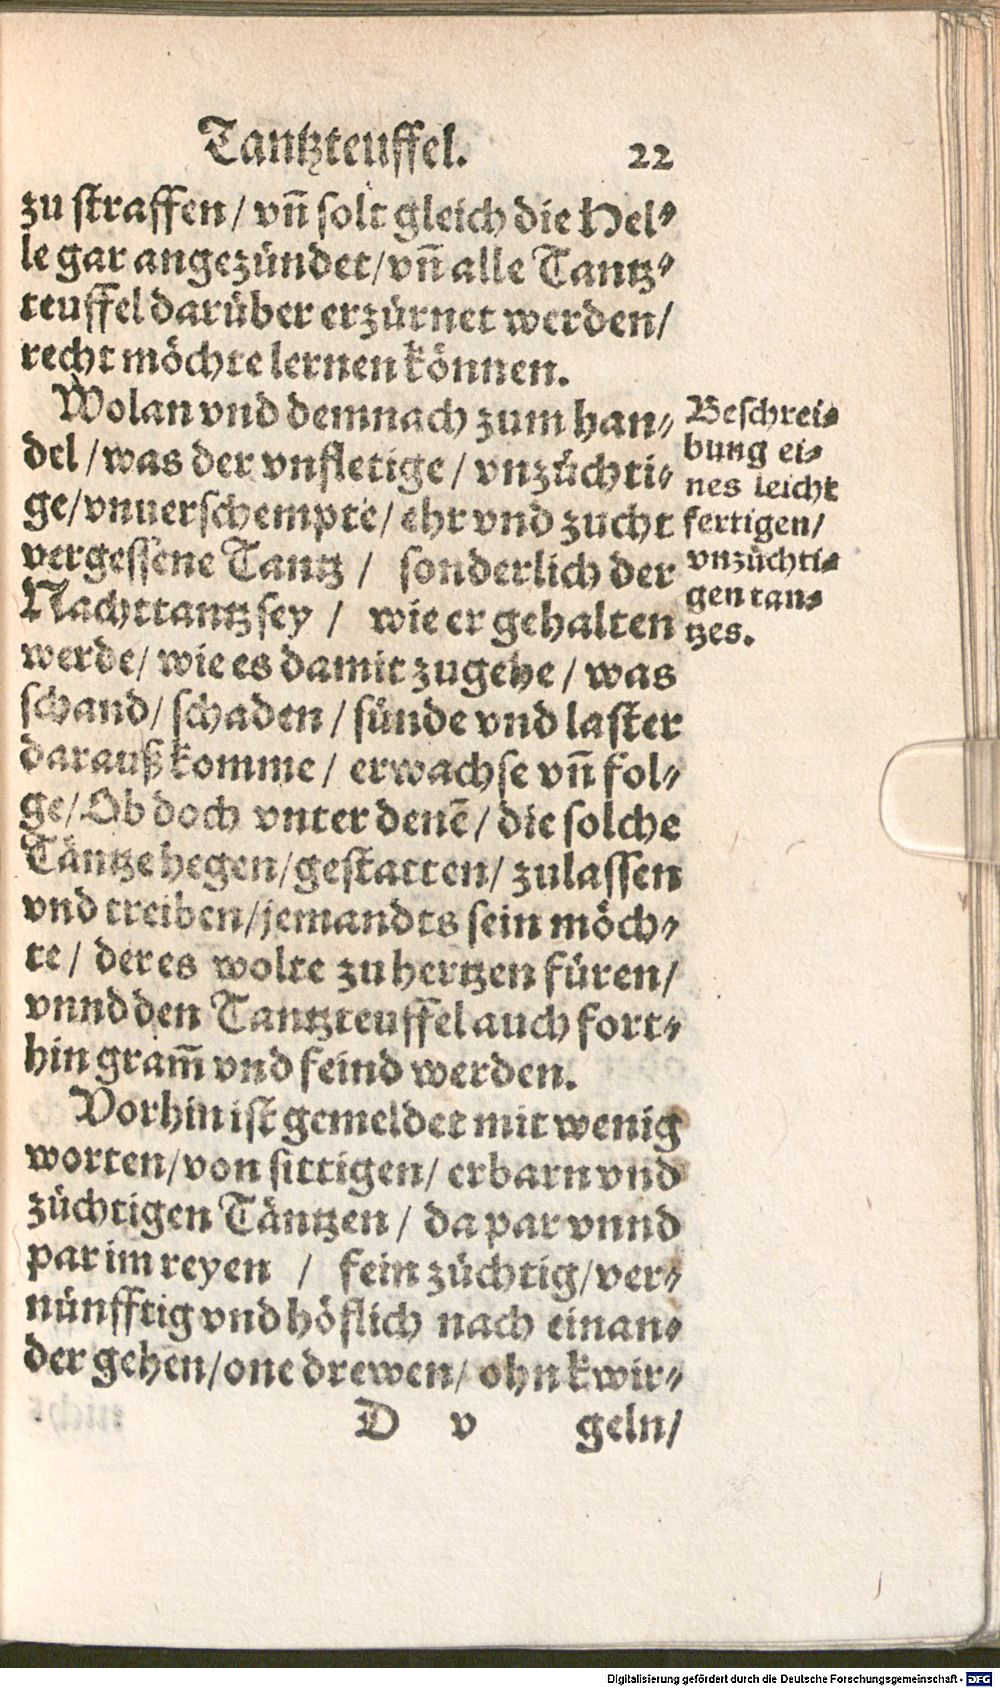 Tantzteuffel. 22
zu ſtraffen / vñ ſolt gleich die Hel⸗
le gar angezündet / vñ alle Tantz⸗
teuffel darüber erzürnet werden /
recht möchte lernen können.
Wolan vnd demnach zum han⸗
del / was der vnfletige / vnzüchti⸗
ge / vnuerſchempte / ehr vnd zucht
vergeſſene Tantz / ſonderlich der
Nachttantz ſey / wie er gehalten
werde / wie es damit zugehe / was
ſchand / ſchaden / ſünde vnd laſter
darauß komme / erwachſe vñ fol⸗
ge / Ob doch vnter denẽ / die ſolche
Täntze hegen / geſtatten / zulaſſen
vnd treiben / jemandts ſein möch⸗
te / der es wolte zu hertzen füren /
vnnd den Tantzteuffel auch fort⸗
hin gram̃ vnd feind werden.
Vorhin iſt gemeldet mit wenig
worten / von ſittigen / erbarn vnd
züchtigen Täntzen / da par vnnd
par im reyen / fein züchtig / ver⸗
nünfftig vnd höflich nach einan⸗
der gehen / one drewen / ohn kwir⸗
D v geln /
Beſchrei⸗
bung ei⸗
nes leicht
fertigen /
vnzüchti⸗
gen tan⸗
tzes.
Digitalisierung gefördert durch die Deutsche Forschungsgemeinschaft - DFG